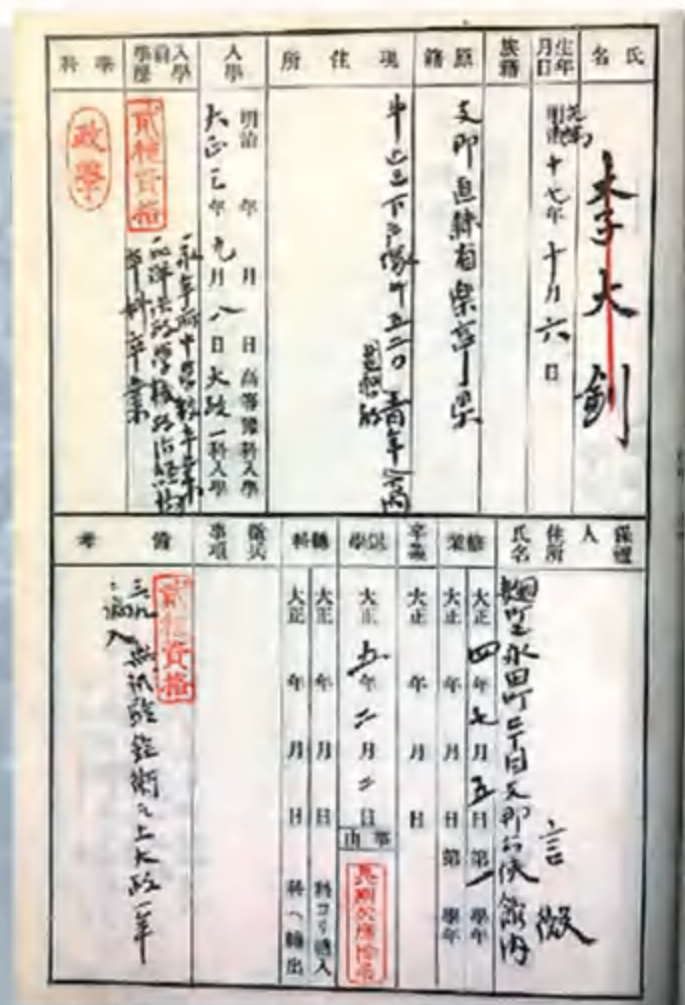 氏名
李大釗
生年月日
光緒
明治十七年十月六日
族籍
原籍
支那直隷省楽亭県
現住所
牛込区下戸塚町五二〇 青年会内
入學
明治 年 月 日高等豫科入學
大正三年九月八日大政一科入學
入學前學歴
貳種資格
一永年府中学校卒業
一北洋法政学校政治経済
本科卒業
學科
政學
保證人
住所
氏名
麹町区永田町二丁目支那公使館内
言微
修業
大正四年七月五日第一學年
大正 年 月 日第 學年
卒業
大正 年 月 日
退學
大正五年二月二日
事由
長期欠席除名
轉科
大正 年 月 日 科ヨリ轉入
大正 年 月 日 科ヘ轉出
徴兵事項
備考
貳種資格
試験銓衡之上大政一年
編入